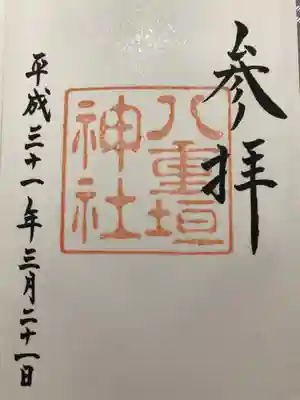 参拝
八重垣
神社
平成三十一年三月二十一日